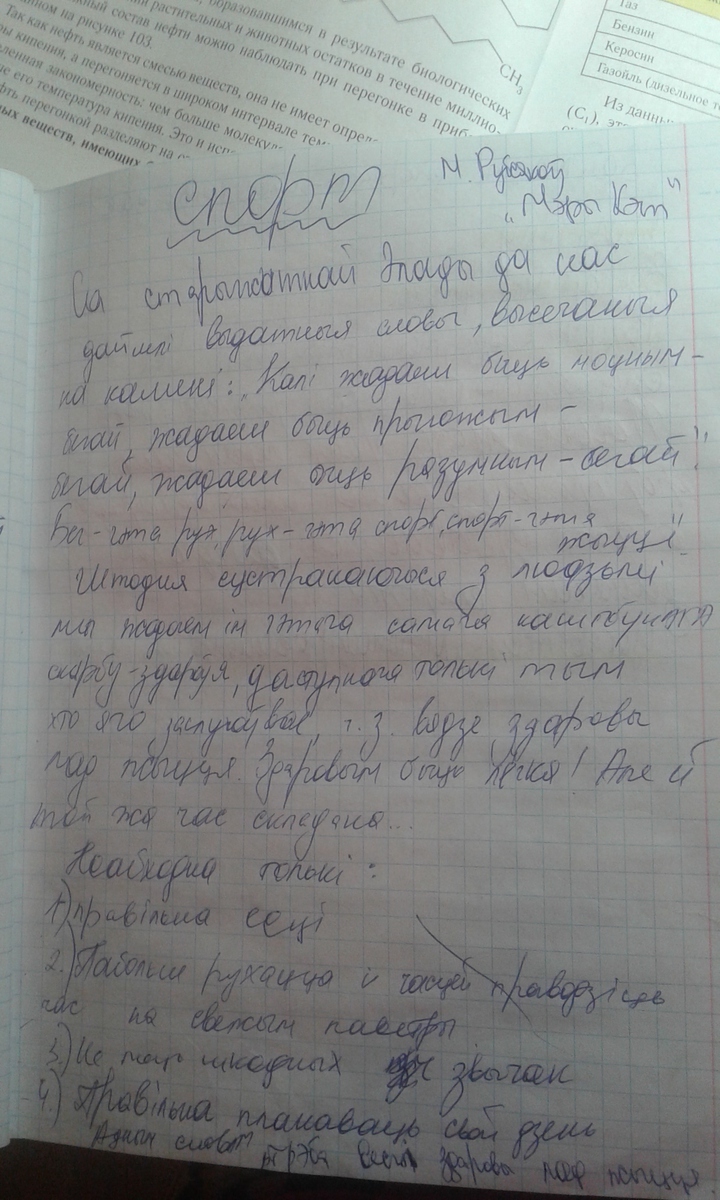 образовавшимся в результате биологических
растительных и животных остатков в течение миллио-
состав нефти можно наблюдать при перегонке в
на рисунке 103.
Так как нефть является смесью веществ, она не имеет
кипения, а перегоняется в широком интервале
закономерность: чем больше
его температура кипения. Это и
перегонкой разделяют на
веществ, имеющих
CH3
Газ
Бензин
Керосин
Газойль (дизельное
Из
(C₁),
спорт
М.
"Мэры Кэт"
Са старажытнай Элады да нас
дайшлі выдатныя словы, высечаныя
на камені: "Калі жадаеш быць моцным –
бегай, жадаеш быць прыгожым –
бегай, жадаеш быць разумным – бегай".
Бег – гэта рух, рух – гэта спорт, спорт – гэта
жыццё".
Штодня сустракаючыся з людзьмі
мы жадаем ім гэтага самага каштоўнага
скарбу – здароўя, даступнага толькі тым
хто яго заслугоўвае, г.з. вядзе здаровы
лад жыцця. Здаровым быць лёгка! Але ў
той жа час складана...
Неабходна толькі:
1) правільна есці
2.) Пабольш рухацца і часцей праводзіць
час на свежым паветры
3.) Не мець шкодных звычак
4.) Правільна планаваць свой дзень
Адным словам трэба весці здаровы лад жыцця